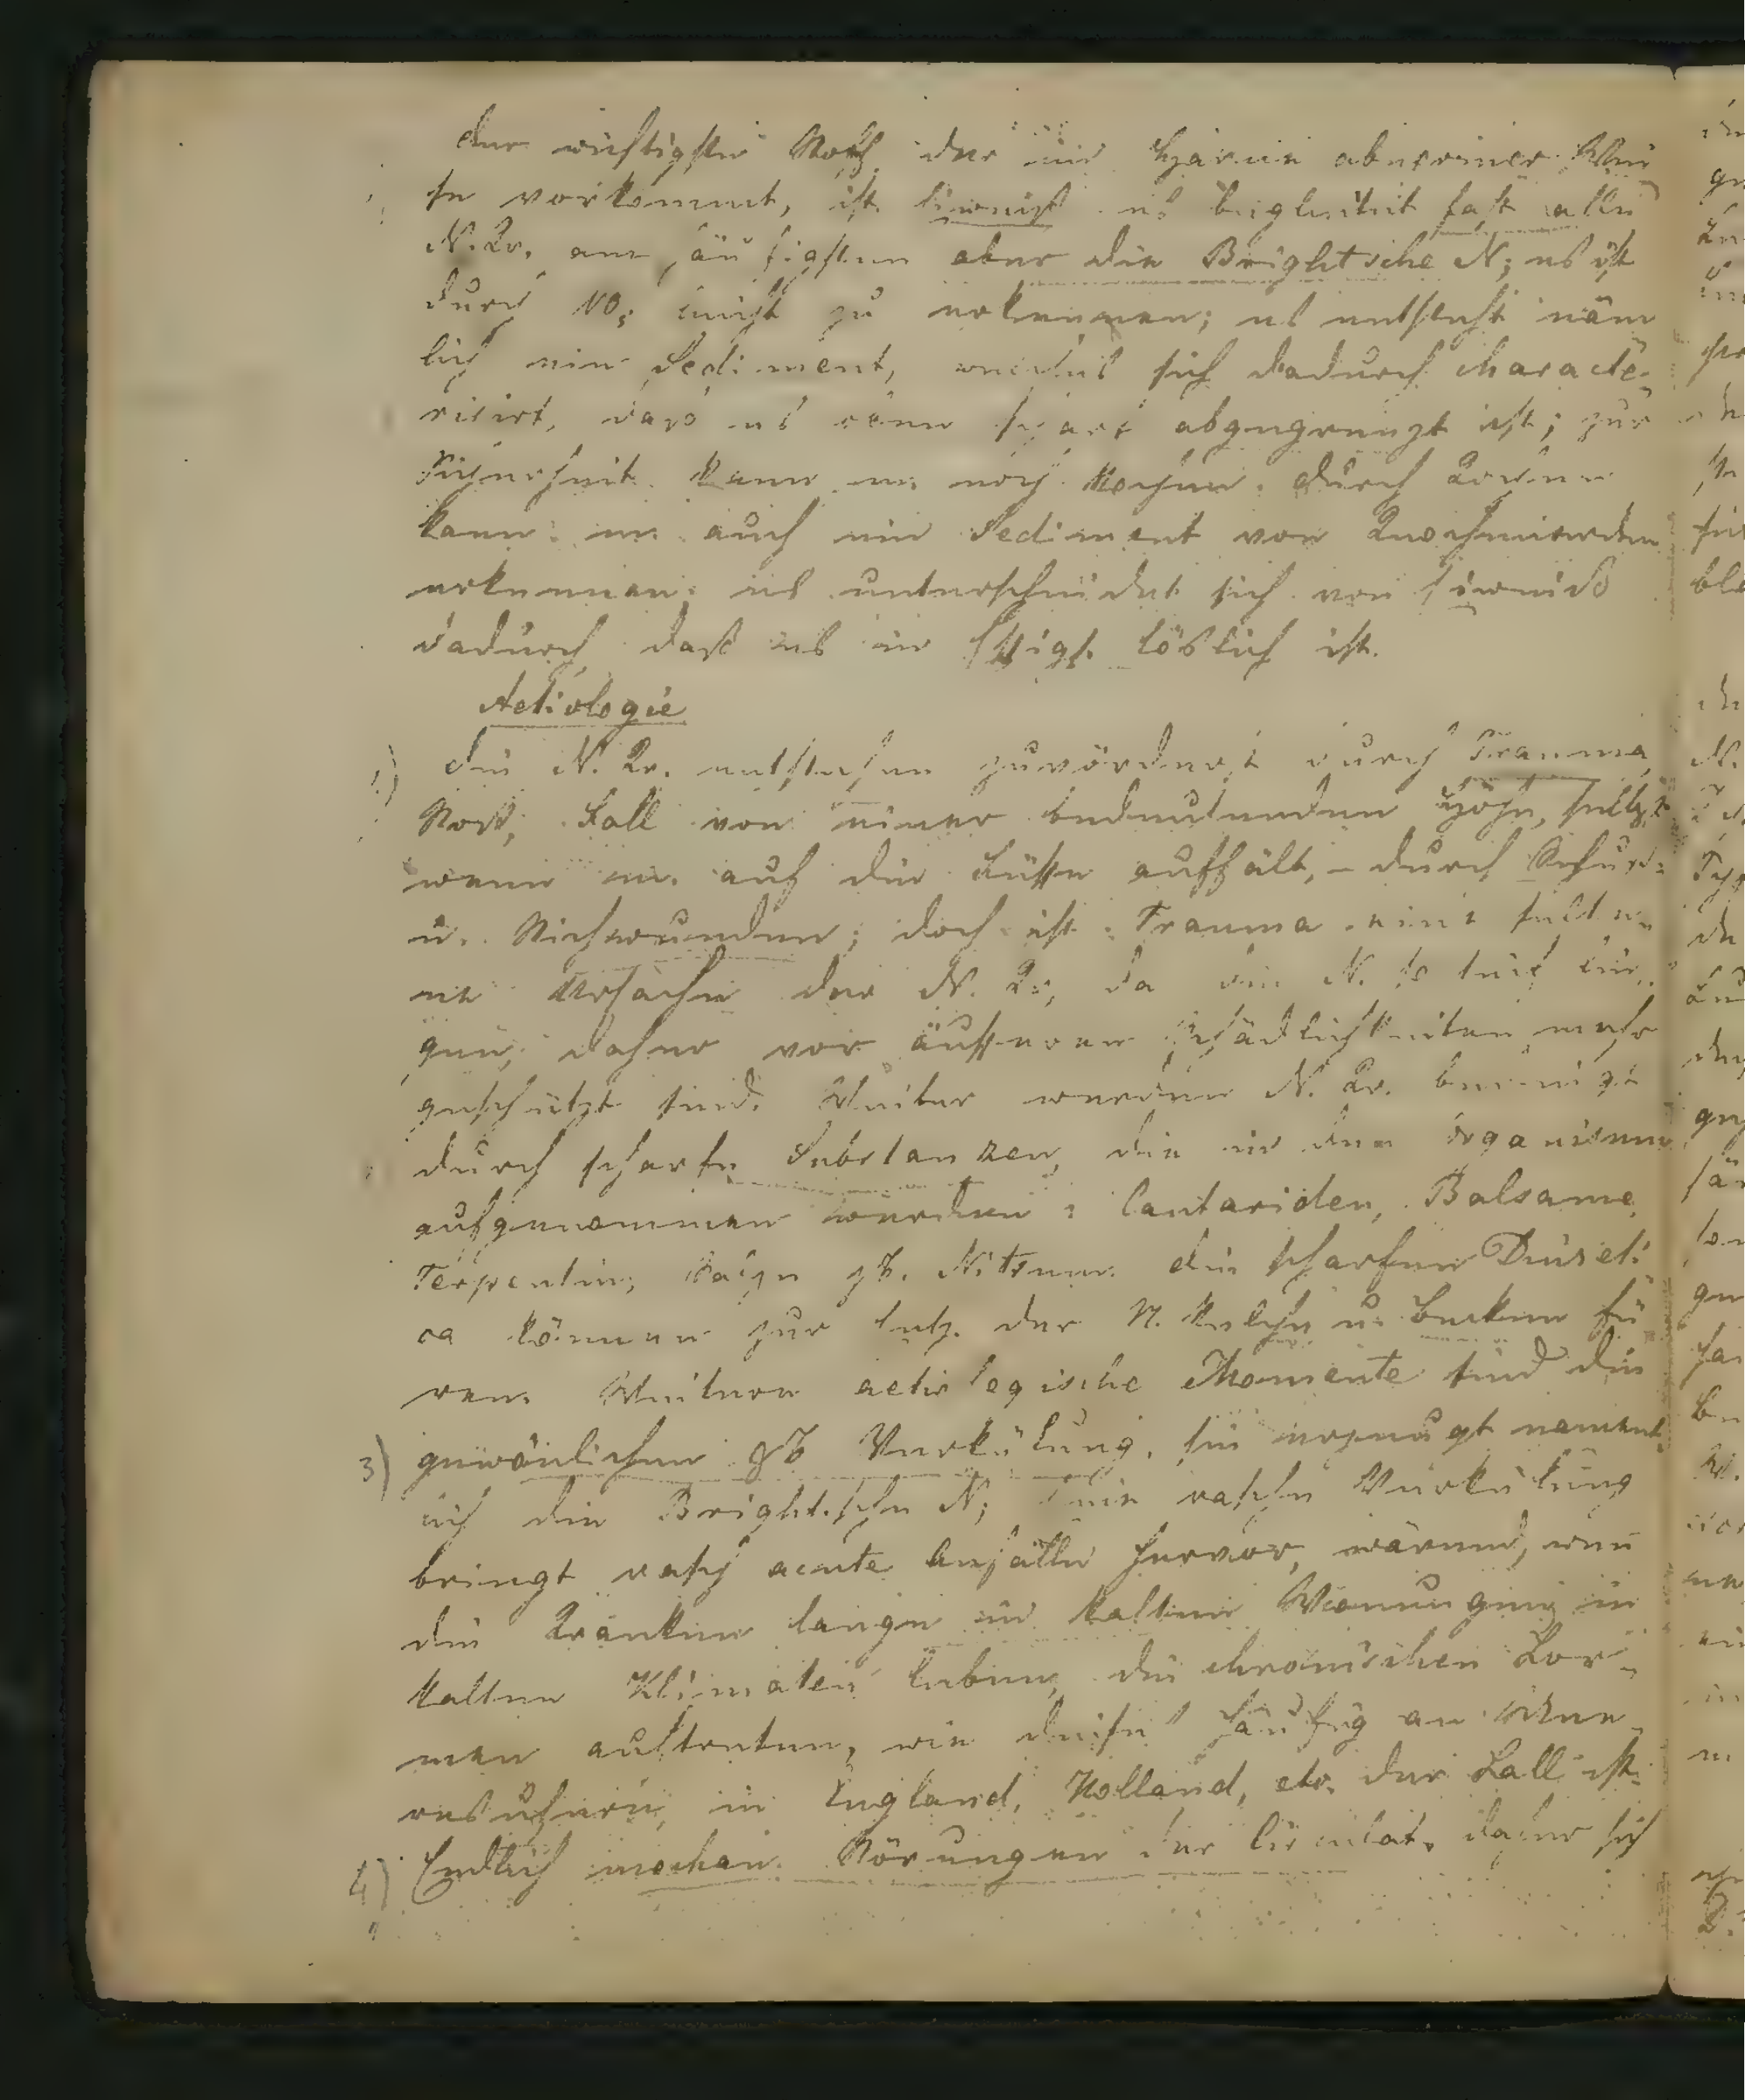 der wichtigste Stoff der im Harne abnormer Wei
se vorkommt, ist Eiweiß es begleitet fast alle
N. Kr. am häufigsten aber die Brightsche N; es ist
durch NO5 leicht zu erkennen; es entsteht näm
lich ein Sediment, welches sich dadurch characte-
risirt, daß es oben scharf abgegrenzt ist; zur
Sicherheit kann m. noch kochen. durch Kochen
kann m. auch ein Sediment von
erkennen; es unterscheidet sich von Eiweiß
dadurch daß es in Essigs. löslich ist.
Aetiologie
1) die N. Kr. entstehen zuvörderst durch Trauma
Stoß, Fall von einer bedeutenden Höhe, selbst
wenn m. auf die Füsse auffält, – durch Schuß-
u. Stichwunden; doch ist Trauma eine selte-
ne Ursache der N. Kr, da die N. so tief lie-
gen, daher vor äusseren Schädlichkeiten mehr
geschützt sind. Weiter werden N. Kr. bewirkt
durch scharfe Substanzen, die in den Organismus
aufgenommen werden: Cantariden, Balsame,
Terpentin, Salze zb. Nitrum. die scharfen Diureti
ca können zur Entz. der N. Kelche u. Becken fü
ren. Weitere aetiologische Momente sind die
3) gewönlichen zb Verkülung, sie erzeugt nament
lich die Bright.sche N; eine rasche Verkülung
bringt rasch acute Anfälle hervor, wärend, wenn
die Kranken lange in kalten Wonungen in
kalten Klimaten leben, die chronischen For-
men auftreten, wie dieß häufig an Meer
resufern, in England, Holland, etc. der Fall ist.
4) Endlich mechan. Störungen der Circulat. daher sich